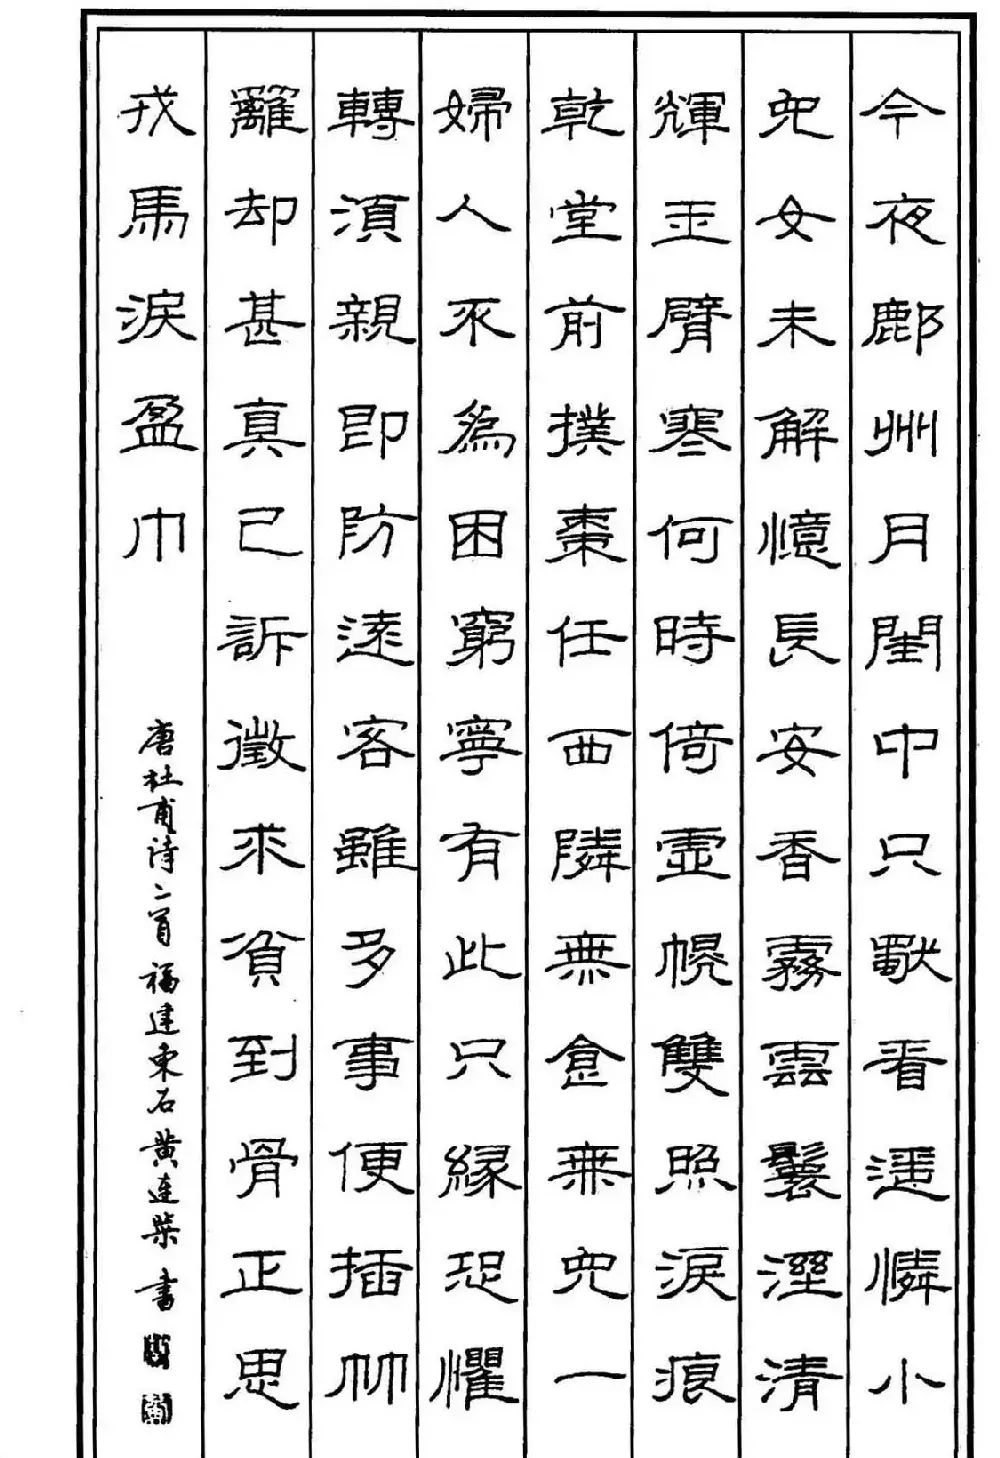 今夜鄜州月閨中只獨看遥憐小
兒女未解憶長安香霧雲鬟溼清
輝玉臂寒何時倚虛幌雙照淚痕
乾堂前撲棗任西隣無食無兒一
婦人不為困窮寧有此只緣恐懼
轉須親即防遠客雖多事便插竹
籬却甚真已訴徵求貧到骨正思
戎馬淚盈巾
唐杜甫詩二首 福建東石黄連榮書